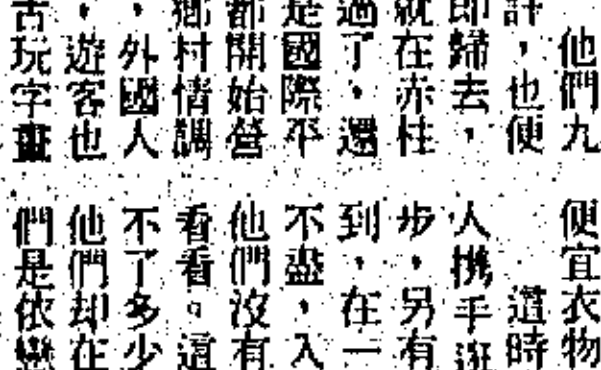 他們九
，也便
即歸去，
就在赤柱
過了，還
是國際平
都開始營
鄉村情調
，外國人
，遊客也
古玩字畫
便宜衣物
這時
人携手逛
步，另有
到，在一
不盡，入
他們沒有
看看。這
不了多少
他們却在
們是依戀